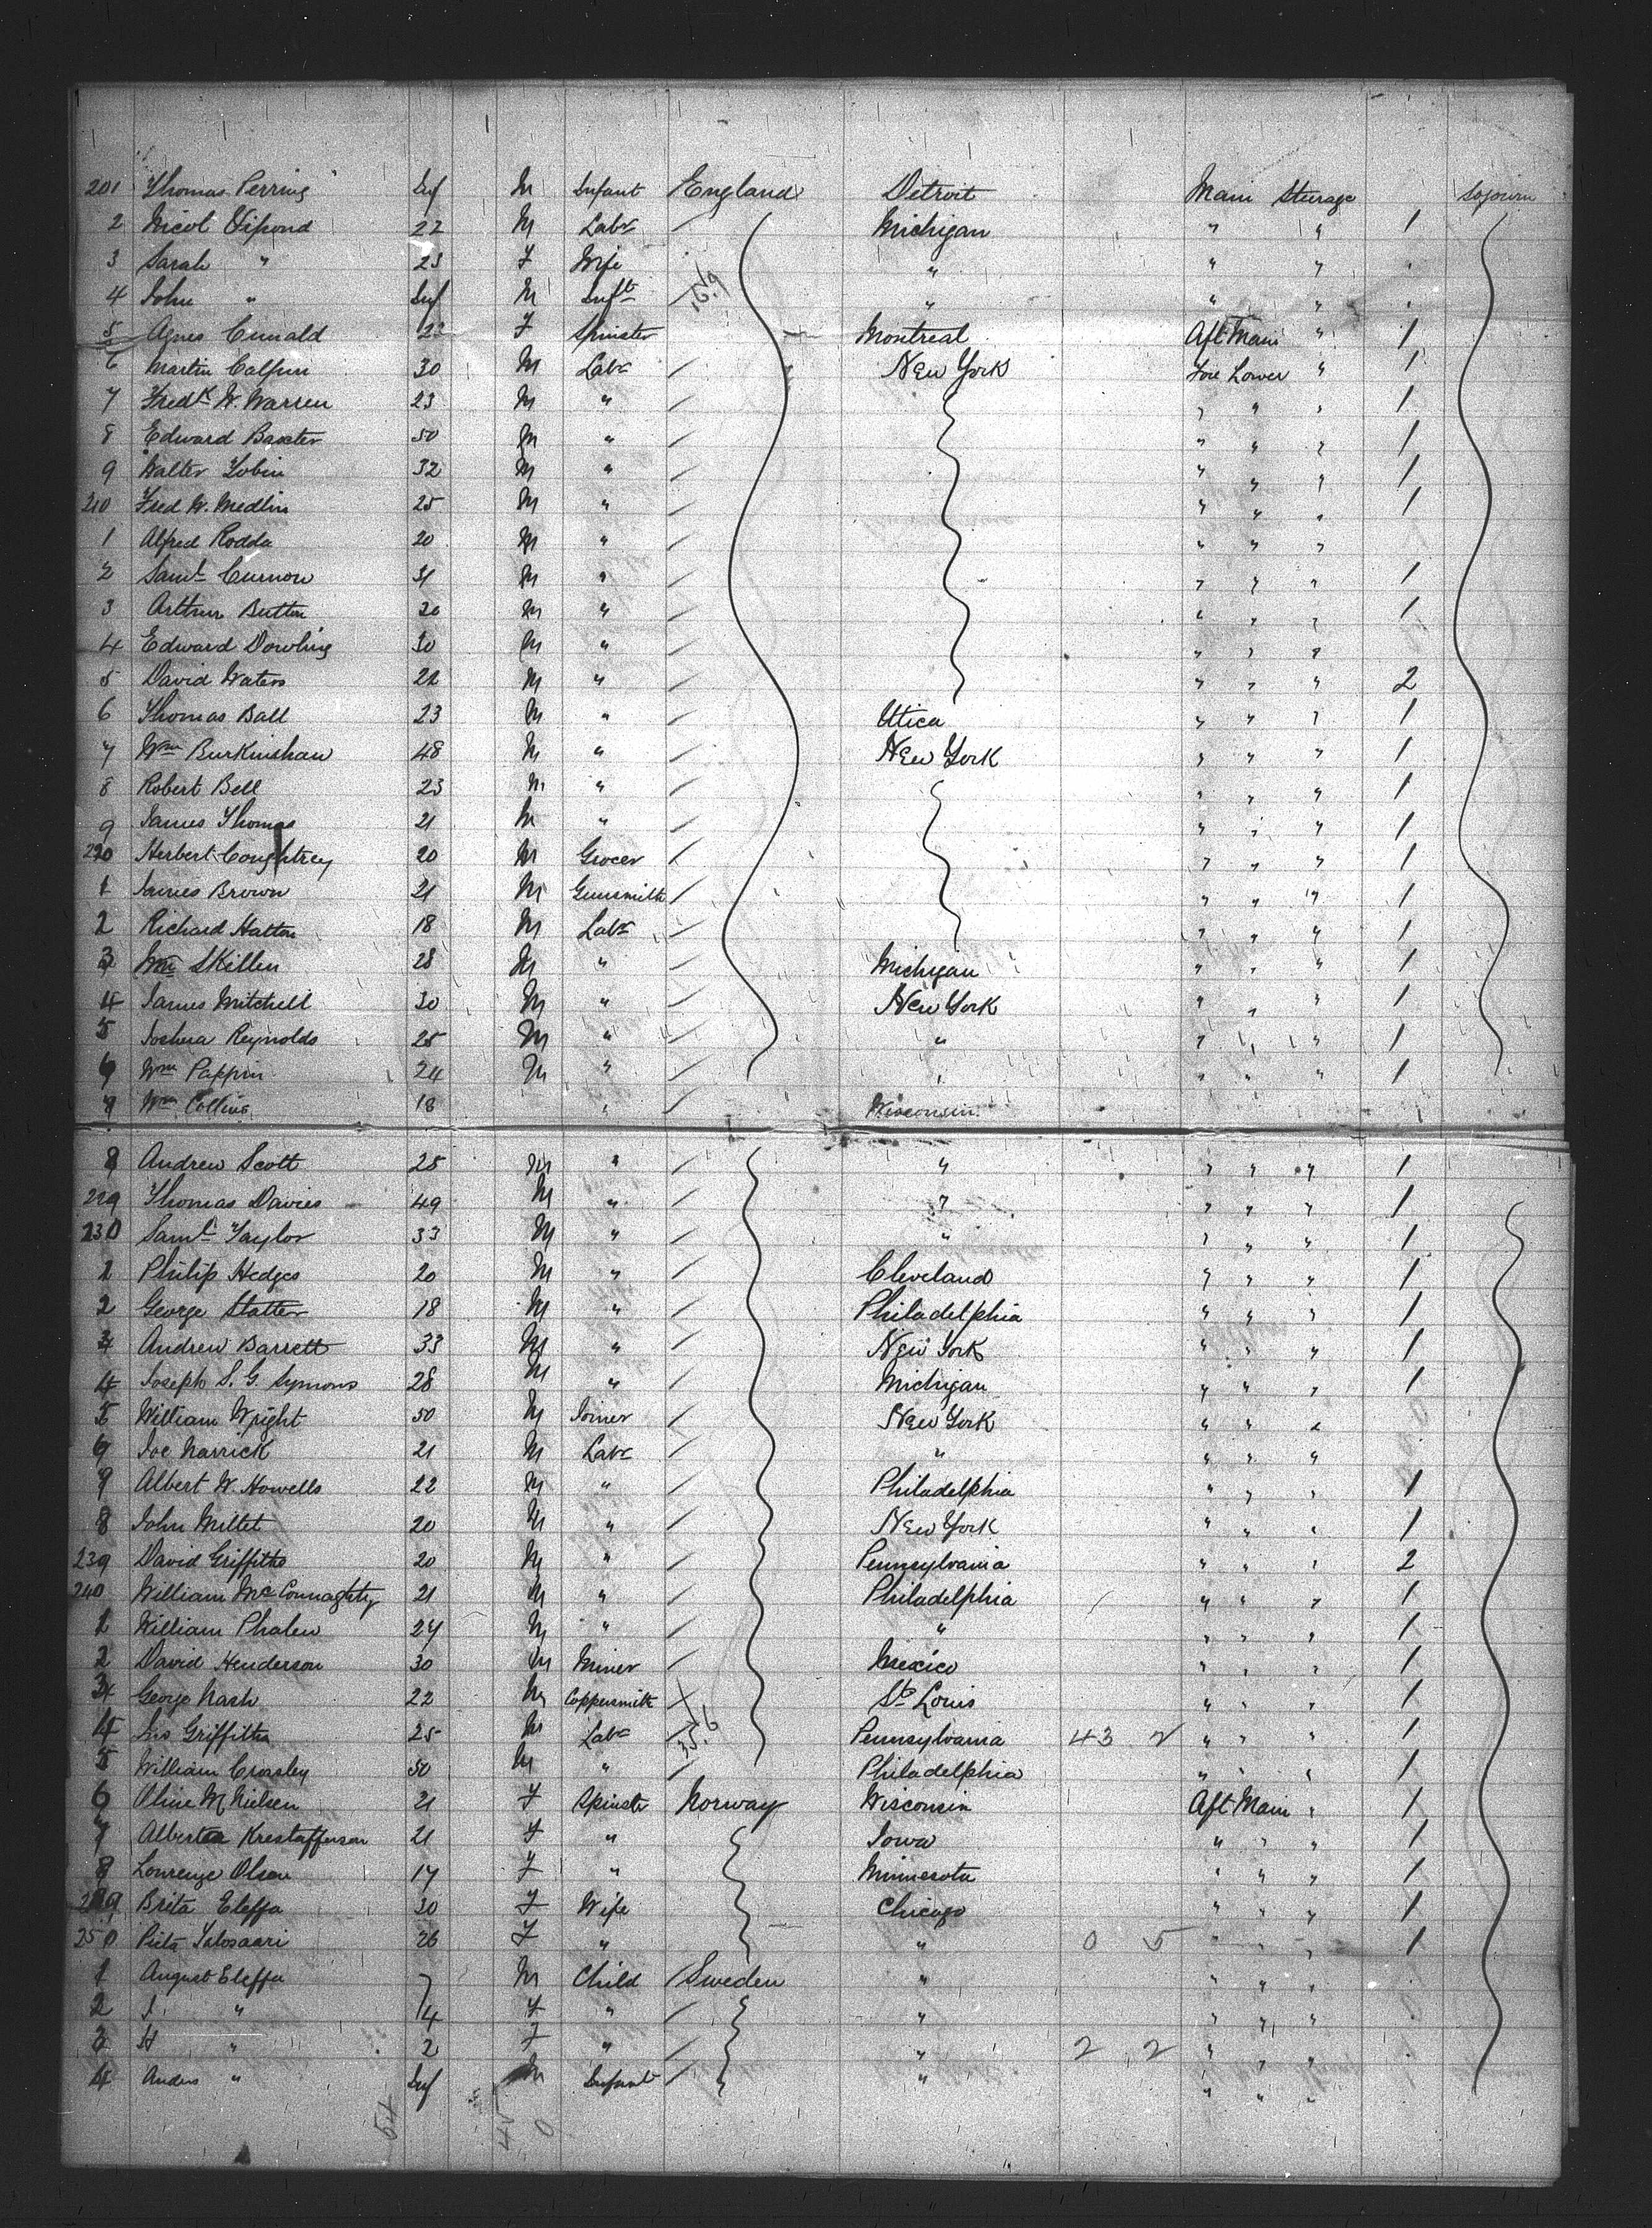 201 Thomas Perring Inf M Infant England Detroit Main Sturage Sojourn
2 Nicol Vipond 22 M Labr Michigan " " 1
3 Sarah " 23 F Wife " " "
4 John " Inf M Inft " " "
5 Agnes 22 F Spinster Montreal Aft Main " 1
6 Martin 30 M Labr New York Fore Lower " 1
7 Fredk W. Warren 23 M " " " " 1
8 Edward Baxter 50 M " " " " 1
9 Walter Tobin 32 M " " " " 1
210 Fred W. Medlin 25 M " " " " 1
1 Alfred Rodda 20 M " " " "
2 Saml Curnow 31 M " " " " 1
3 Arthur Button 20 M " " " " 1
4 Edward Dowling 30 M " " " "
5 David Waters 22 M " " " " 2
6 Thomas Ball 23 M " Utica " " " 1
7 Wm Burkinshaw 48 M " New York " " " 1
8 Robert Bell 23 M " " " " 1
9 James Thomas 21 M " " " " 1
220 Herbert Coughtrey 20 M Grocer " " " 1
1 James Brown 21 M Gunsmith " " " 1
2 Richard Hatton 18 M Labr " " " 1
3 Wm Skillen 28 M " Michigan " " " 1
4 James Mitchell 30 M " New York " " " 1
5 Joshua Reynolds 25 M " " " " " 1
6 Wm Pappin 24 M " " " " " 1
7 Wm Collins 18 " Wisconsin
8 Andrew Scott 25 M " " " " " 1
229 Thomas Davies 49 M " " " " " 1
230 Saml Taylor 33 M " " " " " 1
1 Philip Hedges 20 M " Cleveland " " " 1
2 George Statter 18 M " Philadelphia " " " 1
3 Andrew Barrett 33 M " New York " " " 1
4 Joseph S. G. Symons 28 M " Michigan " " " 1
5 William Wright 50 M Joiner New York " " "
6 Joe Narrick 21 M Labr " " " "
7 Albert W. Howells 22 M " Philadelphia " " " 1
8 John Millet 20 M " New York " " " 1
239 David Griffiths 20 M " Pennsylvania " " " 2
240 William McConnaghty 21 M " Philadelphia " " " 1
1 William Phalen 24 M " " " " " 1
2 David Henderson 30 M Miner Mexico " " " 1
3 George Nash 22 M Coppersmith St Louis " " " 1
4 Griffiths 25 M Labr Pennsylvania 43 2 " " " 1
5 William Crossley 50 M " Philadelphia " " " 1
6 Oline M Nielsen 21 F Spinstr Norway Wisconsin Aft Main " 1
7 Alberta Krestafferson 21 F " Iowa " " " 1
8 Lourenze Olsen 17 F " Minnesota " " " 1
249 Brita Eleffa 30 F Wife Chicago " " " 1
250 Pieta 26 F " " 0 5 " " " 1
1 August Eleffa 7 M Child Sweden " " " "
2 " 4 F " " " " "
3 H " 2 F " " 2 2 " " "
4 Anders " Inf M Infant " " " "